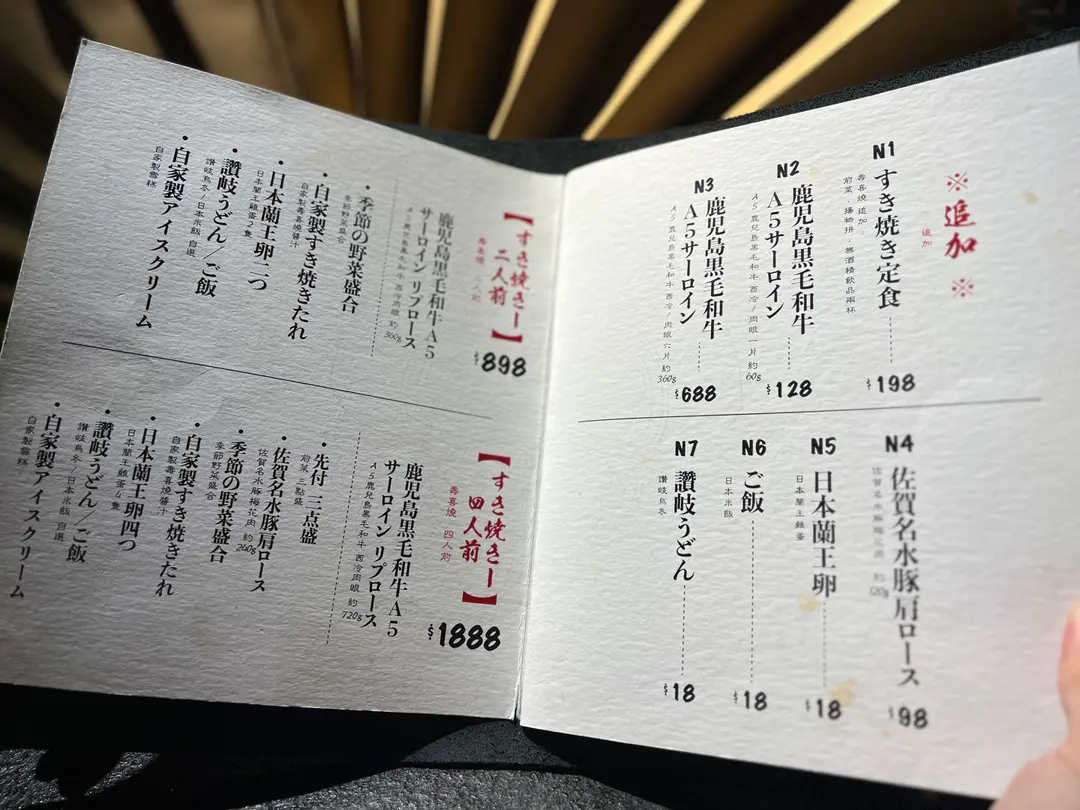 ※追加※
追加
N1
すき焼き定食
壽喜燒 追加：
前菜．揚物拼．無酒精飲品兩杯
$198
N2
鹿児島黒毛和牛
A5サーロイン
A5鹿兒島黑毛和牛 西冷/肉眼一片 約60g
$128
N3
鹿児島黒毛和牛
A5サーロイン
A5鹿兒島黑毛和牛 西冷/肉眼六片 約360g
$688
N4
佐賀名水豚肩ロース
佐賀名水豚梅花肉 約120g
$98
N5
日本蘭王卵
日本蘭王雞蛋
$18
N6
ご飯
日本米飯
$18
N7
讃岐うどん
讚岐烏冬
$18
【すき焼きー
二人前】
壽喜燒 二人前
$898
鹿児島黒毛和牛A5
サーロイン リブロース
A5鹿兒島黑毛和牛 西冷肉眼 約360g
・季節の野菜盛合
季節野菜盛合
・自家製すき焼きたれ
自家製壽喜燒醬汁
・日本蘭王卵二つ
日本蘭王雞蛋2隻
・讃岐うどん/ご飯
讚岐烏冬/日本米飯 自選
・自家製アイスクリーム
自家製雪糕
【すき焼きー
四人前】
壽喜燒 四人前
$1888
鹿児島黒毛和牛A5
サーロイン リブロース
A5鹿兒島黑毛和牛 西冷肉眼 約720g
・先付 三点盛
前菜 三點盛
・佐賀名水豚肩ロース
佐賀名水豚梅花肉 約260g
・季節の野菜盛合
季節野菜盛合
・自家製すき焼きたれ
自家製壽喜燒醬汁
・日本蘭王卵四つ
日本蘭王雞蛋4隻
・讃岐うどん/ご飯
讚岐烏冬/日本米飯 自選
・自家製アイスクリーム
自家製雪糕